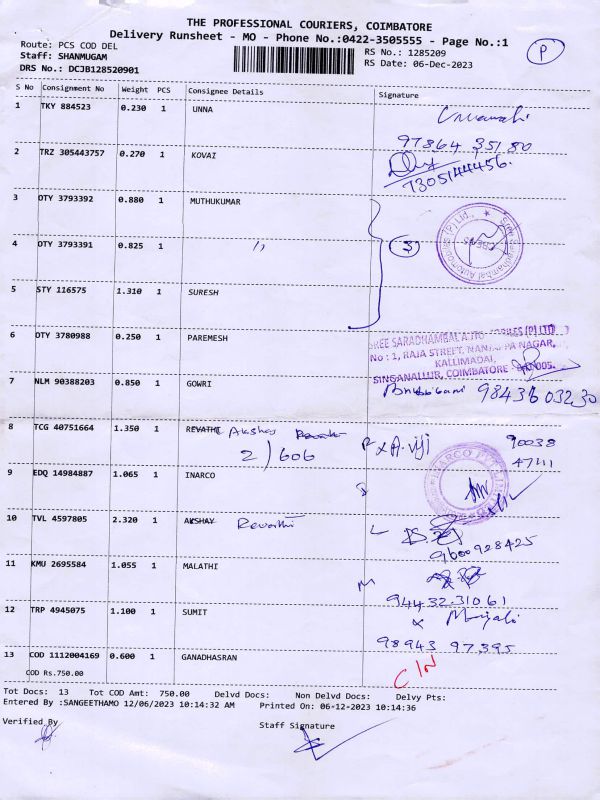 THE PROFESSIONAL COURIERS, COIMBATORE
Delivery Runsheet - MO - Phone No.:0422-3505555 - Page No.:1
Route: PCS COD DEL
RS No.: 1285209
P
Staff: SHANMUGAM
RS Date: 06-Dec-2023
DRS No.: DCJB128520901
S No Consignment No Weight PCS Consignee Details Signature
1 TKY 884523 0.230 1 UNNA
97864 35180
2 TRZ 305443757 0.270 1 KOVAI
7305144456.
3 OTY 3793392 0.880 1 MUTHUKUMAR
4 OTY 3793391 0.825 1 〃
3
5 STY 116575 1.310 1 SURESH
6 OTY 3780988 0.250 1 PAREMESH
SREE SARADHAMBAL AUTOMOBILES (P) LTD
No : 1, RAJA STREET, NANJAPPA NAGAR,
KALLIMADAI,
SINGANALLUR, COIMBATORE 641 005.
7 NLM 90388203 0.850 1 GOWRI
98436 03230
8 TCG 40751664 1.350 1 REVATHI Akshay
2/606
A. viji
90038
47111
9 EDQ 14984887 1.065 1 INARCO
10 TVL 4597805 2.320 1 AKSHAY Revathi
L
9600928425
11 KMU 2695584 1.055 1 MALATHI
M
94432.31061
12 TRP 4945075 1.100 1 SUMIT
98943 97395
13 COD 1112004169 0.600 1 GANADHASRAN
C/N
COD Rs.750.00
Tot Docs: 13 Tot COD Amt: 750.00 Delvd Docs: Non Delvd Docs: Delvy Pts:
Entered By :SANGEETHAMO 12/06/2023 10:14:32 AM Printed On: 06-12-2023 10:14:36
Verified By
Staff Signature